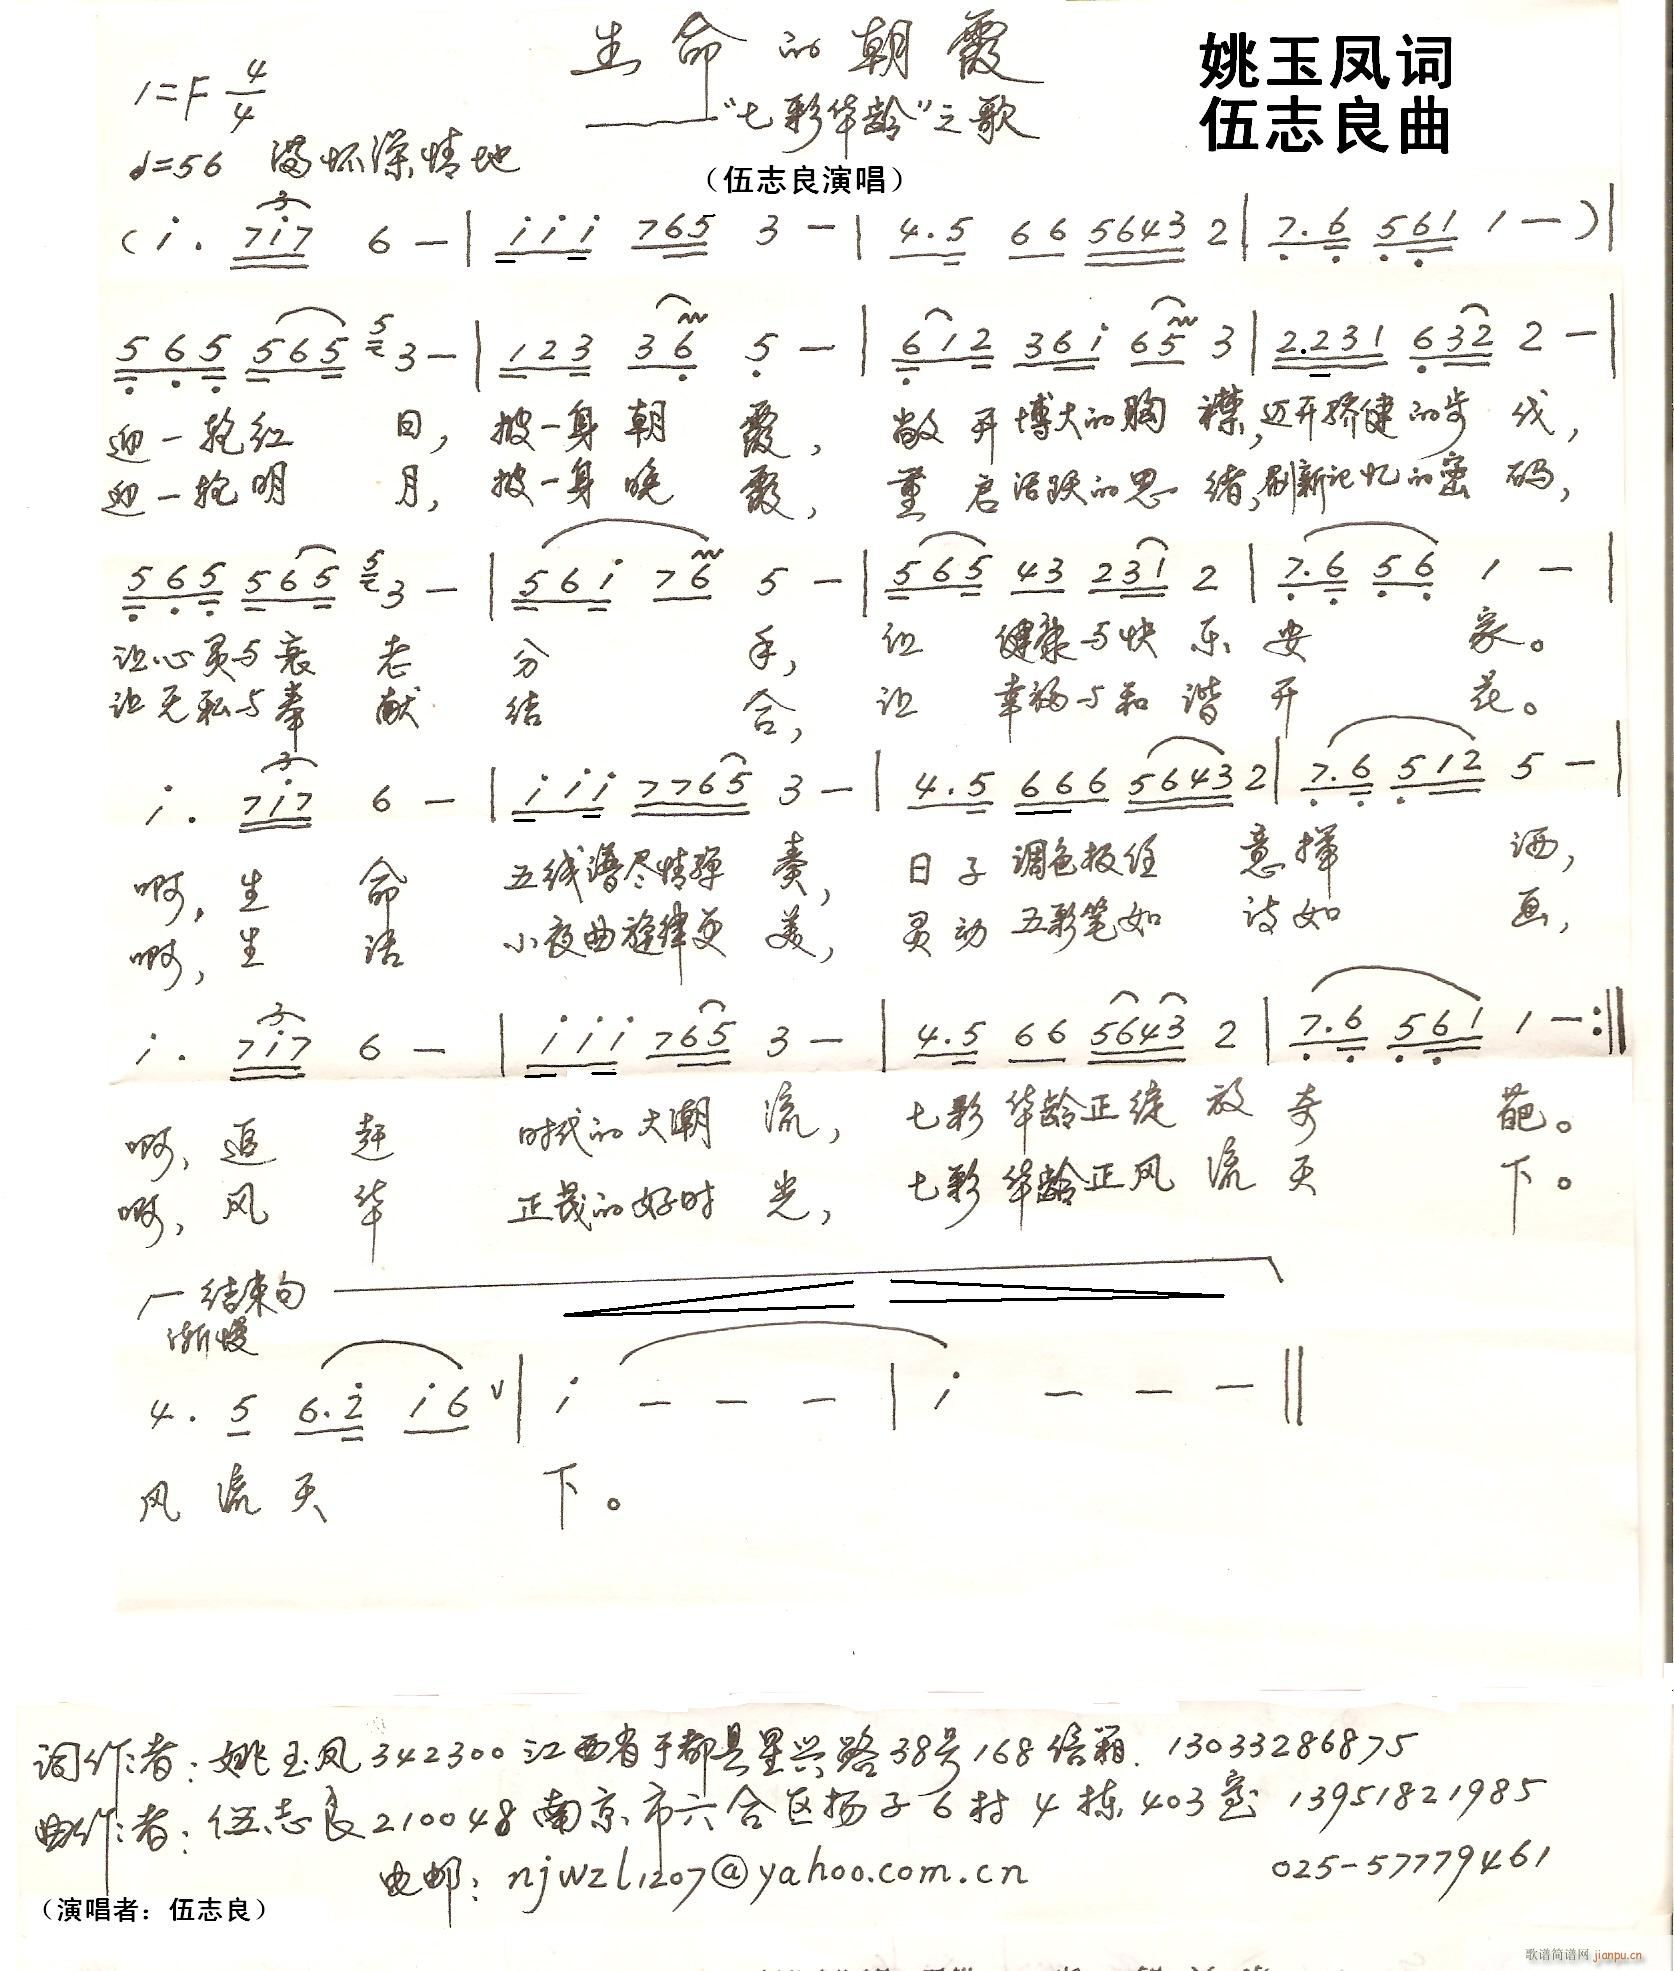 生命的朝霞
——“七彩华龄”之歌
(伍志良演唱)
姚玉凤词
伍志良曲
1=F 4/4
♩=56 满怀深情地
(i. 7i7 6 - | iii 765 3 - | 4.5 66 5643 2 | 7.6 561 1 - )|
565 565 3 - | 123 36 5 - | 612 36i 65 3 | 2.231 632 2 - |
迎一轮红 日, 披一身朝 霞, 敞开博大的胸 襟, 迈开矫健的步 伐,
迎一轮明 月, 披一身晚 霞, 重启活跃的思 绪, 刷新记忆的密 码,
565 565 3 - | 56i 76 5 - | 565 43 231 2 | 7.6 56 1 - |
让心灵与衰 老 分 手, 让 健康与快 乐 安 家。
让无私与奉 献 结 合, 让 幸福与和 谐 开 花。
i. 7i7 6 - | iii 7765 3 - | 4.5 666 5643 2 | 7.6 512 5 - |
啊, 生 命 五线谱尽情弹 奏, 日子 调色板任 意挥 洒,
啊, 生 活 小夜曲旋律更 美, 灵动 五彩笔如 诗如 画,
i. 7i7 6 - | iii 765 3 - | 4.5 66 5643 2 | 7.6 561 1 - :||
啊, 追 赶 时代的大潮 流, 七彩 华龄正绽 放 奇 葩。
啊, 风 华 正茂的好时 光, 七彩 华龄正风 流 天 下。
结束句
渐慢
4. 5 6.2 i6 ∨ | i - - - | i - - - ||
风 流 天 下。
词作者:姚玉凤 342300 江西省于都县里兴路38号168信箱. 13033286875
曲作者:伍志良 210048 南京市六合区扬子6村4栋403室 13951821985
电邮:njwzl1207@yahoo.com.cn 025-57779461
(演唱者:伍志良)
歌谱简谱网 jianpu.cn